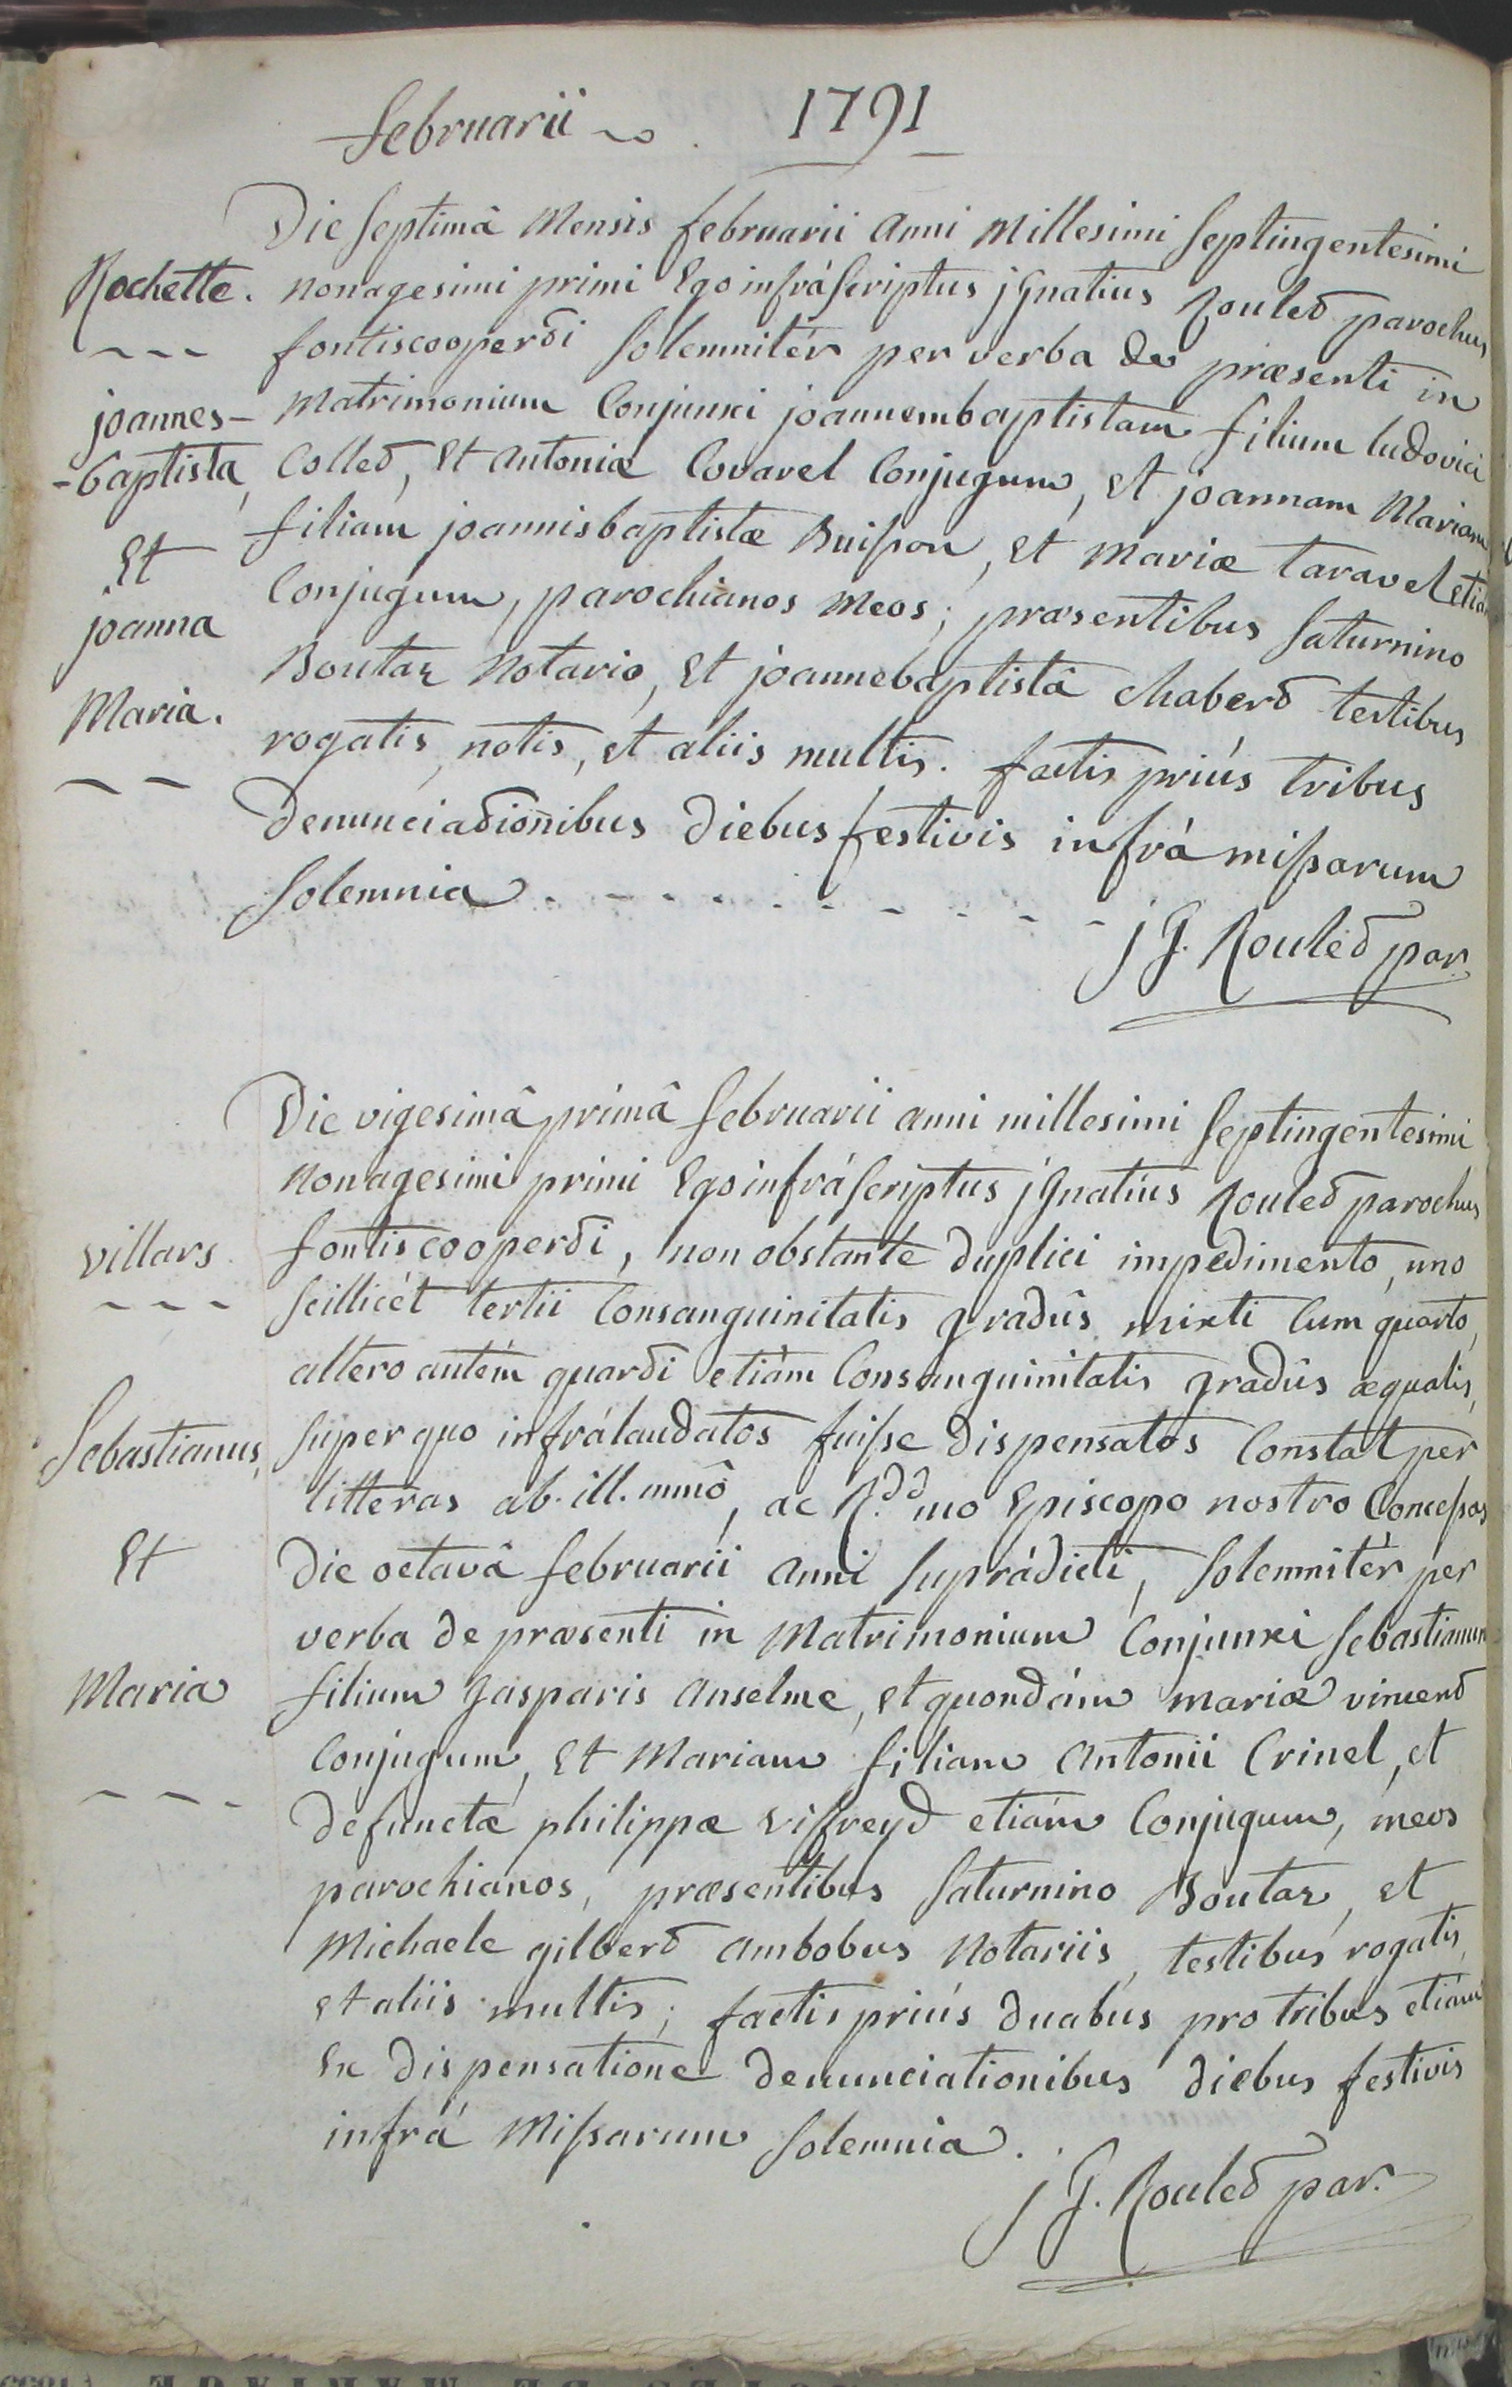 februarii 1791
Rochette.
joannes-
-baptista,
Et
joanna
Maria.
Die septimâ Mensis februarii Anni Millesimi Septingentesimi
nonagesimi primi Ego infráscriptus jGnatius Rouled parochus
fontiscooperdi solemnitér per verba de præsenti in
Matrimonium Conjunxi joannembaptistam filium ludovici
Colled, Et Antoniæ Covarel Conjugum, et joannam Mariam
filiam joannisbaptistæ Buisson, et Mariæ taravel etiàm
Conjugum, parochianos meos; præsentibus Saturnino
Boutaz Notario, Et joannebaptistâ chaberd testibus
rogatis, notis, et aliis multis. factis priùs tribus
denunciadionibus diebus festivis infrá missarum
solemnia.
jG. Rouled par.
villars
Sebastianus,
Et
Maria
Die vigesimâ primâ februarii anni millesimi Septingentesimi
nonagesimi primi Ego infráscriptus jGnatius Rouled parochus
fontiscooperdi, non obstante duplici impedimento, uno
scillicét tertii Consanguinitatis gradûs mixti Cum quarto,
altero autém quardi etiàm Consanguinitatis gradûs æqualis,
super quo infrálaudatos fuisse dispensatos Constat per
litteras ab. ill.mmô, ac R.dd mo Episcopo nostro Concessas
die octavâ februarii anni suprádicti, solemnitèr per
verba de præsenti in Matrimonium Conjunxi Sebastianum
filium Gasparis Anselme, et quondám mariæ vincend
Conjugum, Et Mariam filiam Antonii Crinel, et
defunctæ philippæ vifreyd etiám Conjugum, meos
parochianos, præsentibus Saturnino Boutaz, et
Michaele gilberd ambobus Notariis, testibus rogatis,
et aliis multis; factis priús duabus pro tribus etiàm
Ex dispensatione denunciationibus diebus festivis
infrá Missarum solemnia.
jG. Rouled par.